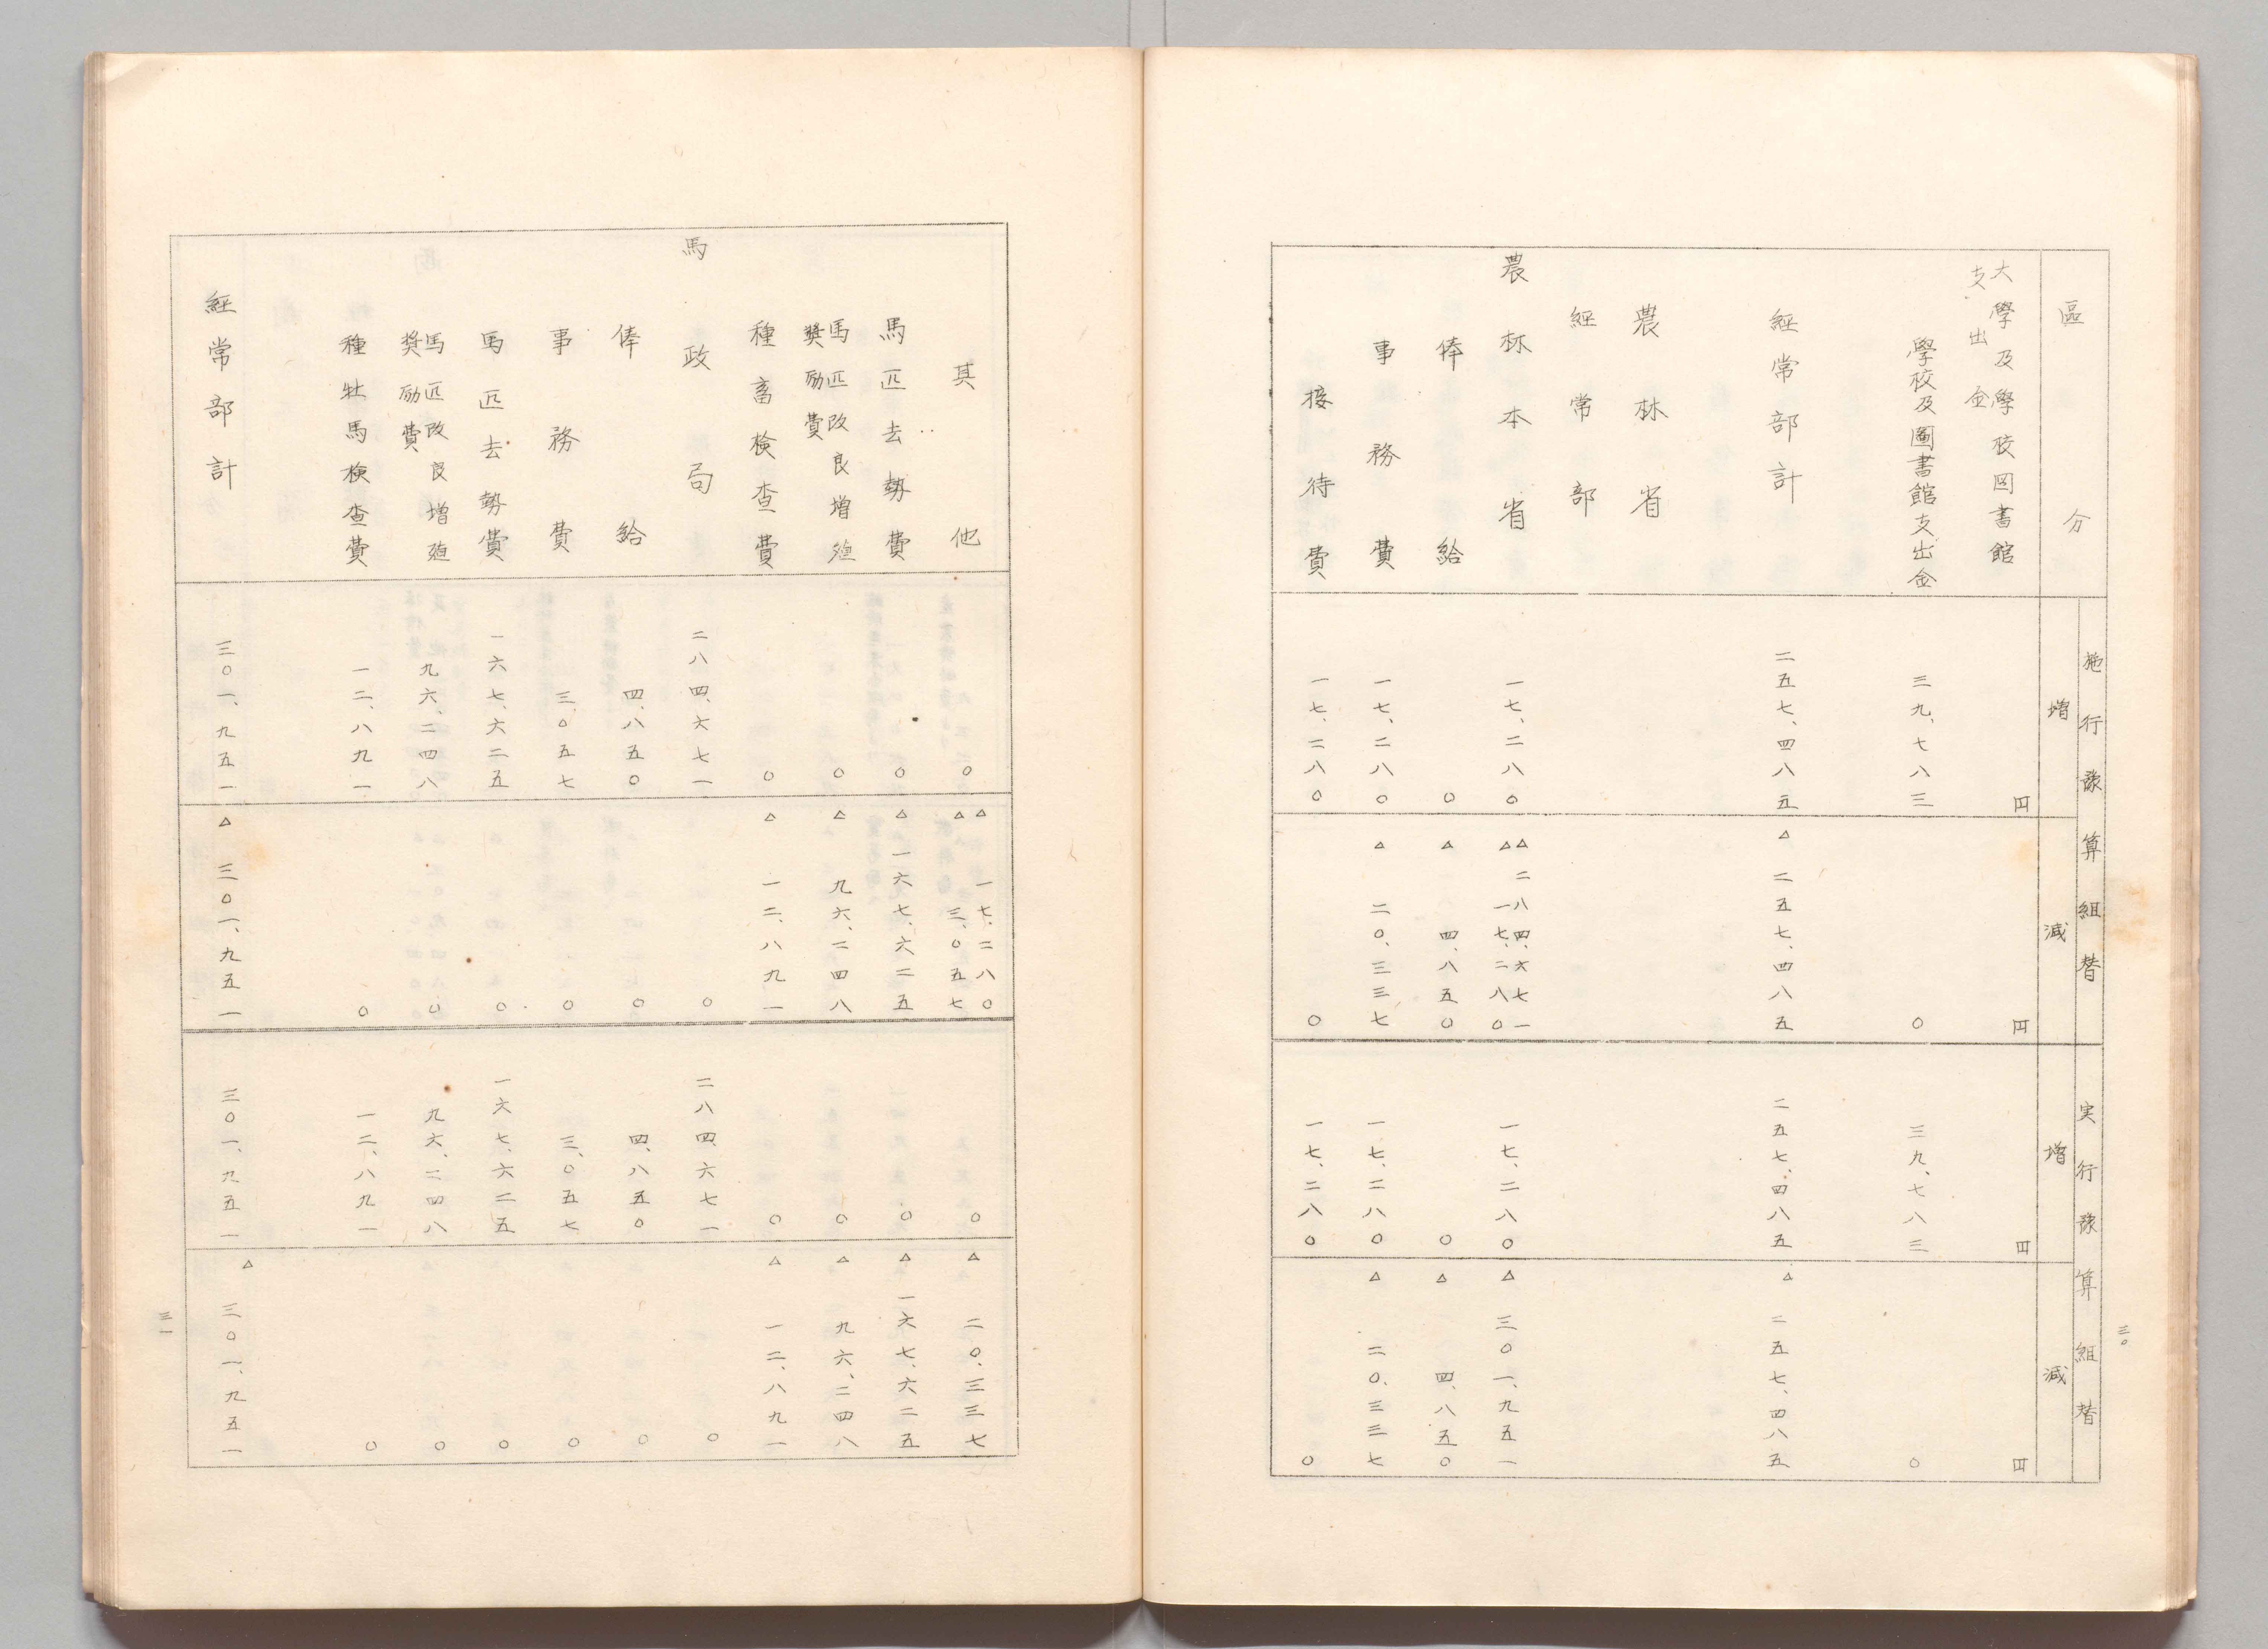 三〇
區分
施行豫算組替
増
減
実行豫算組替
増
減
大學及學校図書館
支出金
円
円
円
円
學校及圖書館支出金
三九、七八三
〇
三九、七八三
〇
經常部計
二五七、四八五
△二五七、四八五
二五七、四八五
△二五七、四八五
農林省
經常部
農林本省
一七、二八〇
△二八四、六七一
△一七、二八〇
一七、二八〇
△三〇一、九五一
俸給
〇
△四、八五〇
〇
△四、八五〇
事務費
一七、二八〇
△二〇、三三七
一七、二八〇
△二〇、三三七
接待費
一七、二八〇
〇
一七、二八〇
〇
其他
〇
△一七、二八〇
△三、〇五七
〇
△二〇、三三七
馬匹去勢費
〇
△一六七、六二五
〇
△一六七、六二五
馬匹改良増殖
奬励費
〇
△九六、二四八
〇
△九六、二四八
種畜検査費
〇
△一二、八九一
〇
△一二、八九一
馬政局
二八四、六七一
〇
二八四、六七一
〇
俸給
四、八五〇
〇
四、八五〇
〇
事務費
三、〇五七
〇
三、〇五七
〇
馬匹去勢費
一六七、六二五
〇
一六七、六二五
〇
馬匹改良増殖
奬励費
九六、二四八
〇
九六、二四八
〇
種牡馬検査費
一二、八九一
〇
一二、八九一
〇
經常部計
三〇一、九五一
△三〇一、九五一
三〇一、九五一
△三〇一、九五一
三一